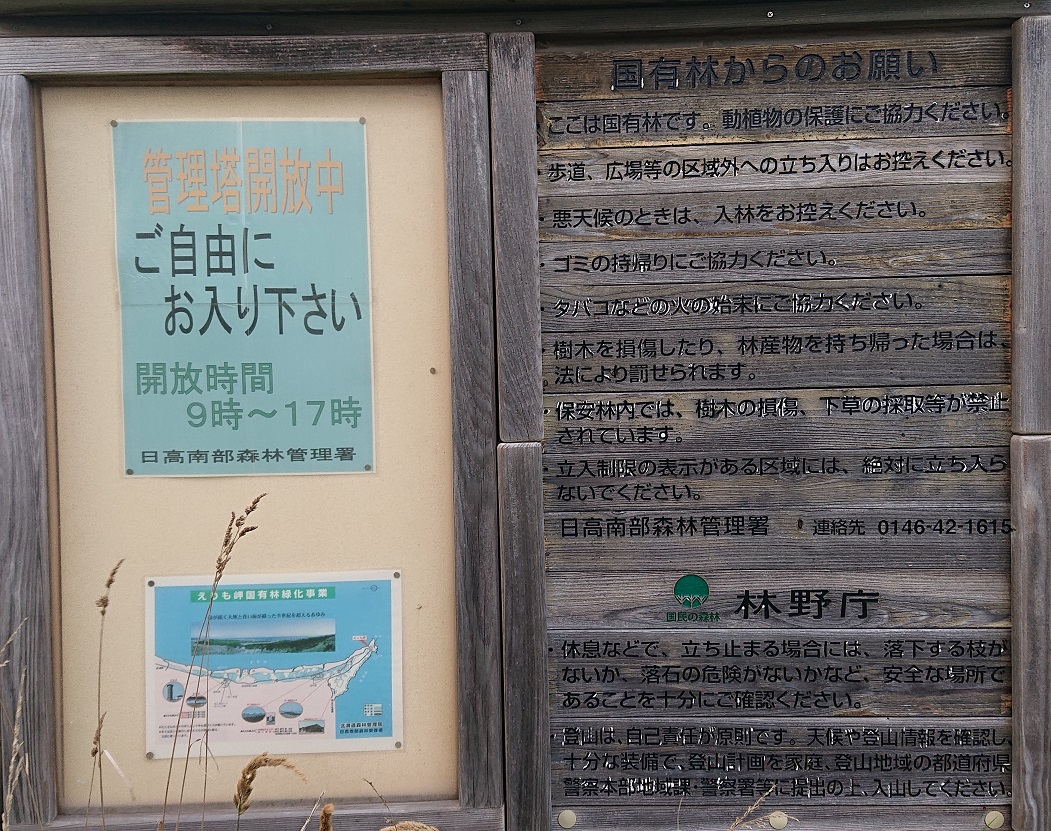 管理塔開放中
ご自由に
お入り下さい
開放時間
9時～17時
日高南部森林管理署
えりも岬国有林緑化事業
北海道森林管理局
日高南部森林管理署
国有林からのお願い
ここは国有林です。動植物の保護にご協力ください。
・歩道、広場等の区域外への立ち入りはお控えください。
・悪天候のときは、入林をお控えください。
・ゴミの持帰りにご協力ください。
・タバコなどの火の始末にご協力ください。
・樹木を損傷したり、林産物を持ち帰った場合は、
法により罰せられます。
・保安林内では、樹木の損傷、下草の採取等が禁止
されています。
・立入制限の表示がある区域には、絶対に立ち入ら
ないでください。
日高南部森林管理署 連絡先 0146-42-1615
国民の森林 林野庁
・休息などで、立ち止まる場合には、落下する枝が
ないか、落石の危険がないかなど、安全な場所で
あることを十分にご確認ください。
・登山は、自己責任が原則です。天候や登山情報を確認し、
十分な装備で、登山計画を家庭、登山地域の都道府県
警察本部地域課・警察署等に提出の上、入山してください。